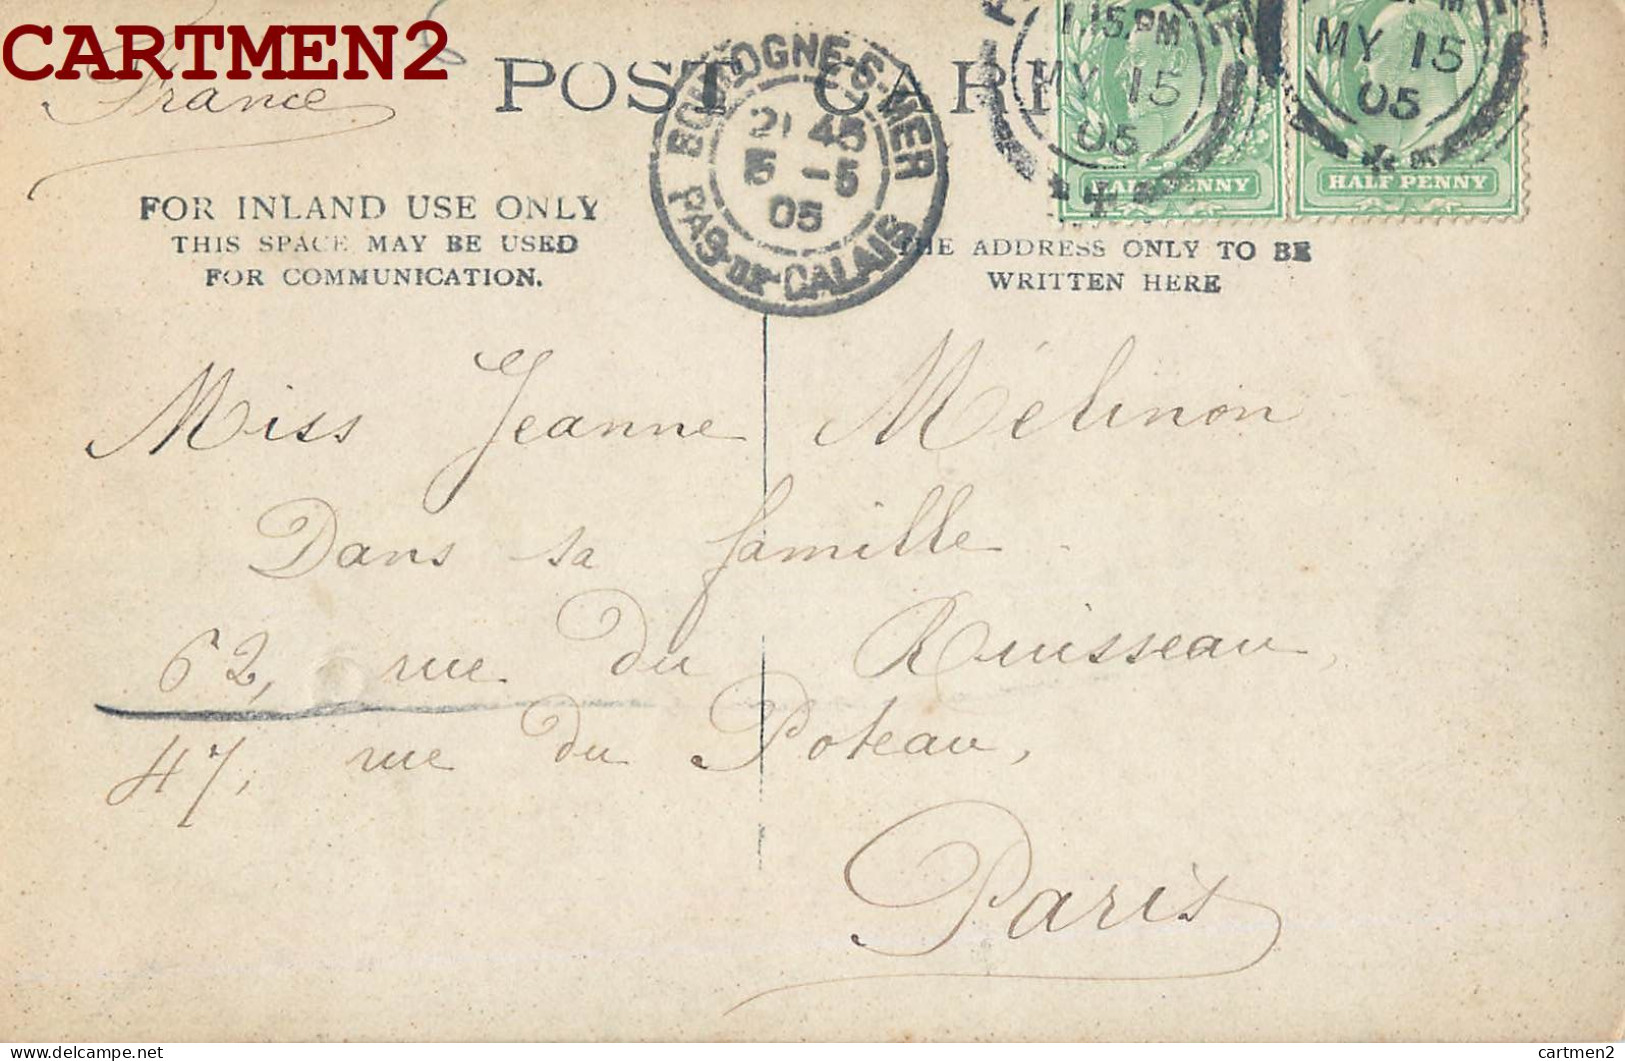 CARTMEN2
France
POST CARD
BOULOGNE-S-MER
21 45
15 -5
05
PAS-DE-CALAIS
1.15.PM
MY 15
05
MY 15
05
HALF PENNY
HALF PENNY
FOR INLAND USE ONLY
THIS SPACE MAY BE USED
FOR COMMUNICATION.
THE ADDRESS ONLY TO BE
WRITTEN HERE
Miss Jeanne Mélinon
Dans sa famille
62, rue du Ruisseau,
47, rue du Poteau,
Paris
cartmen2